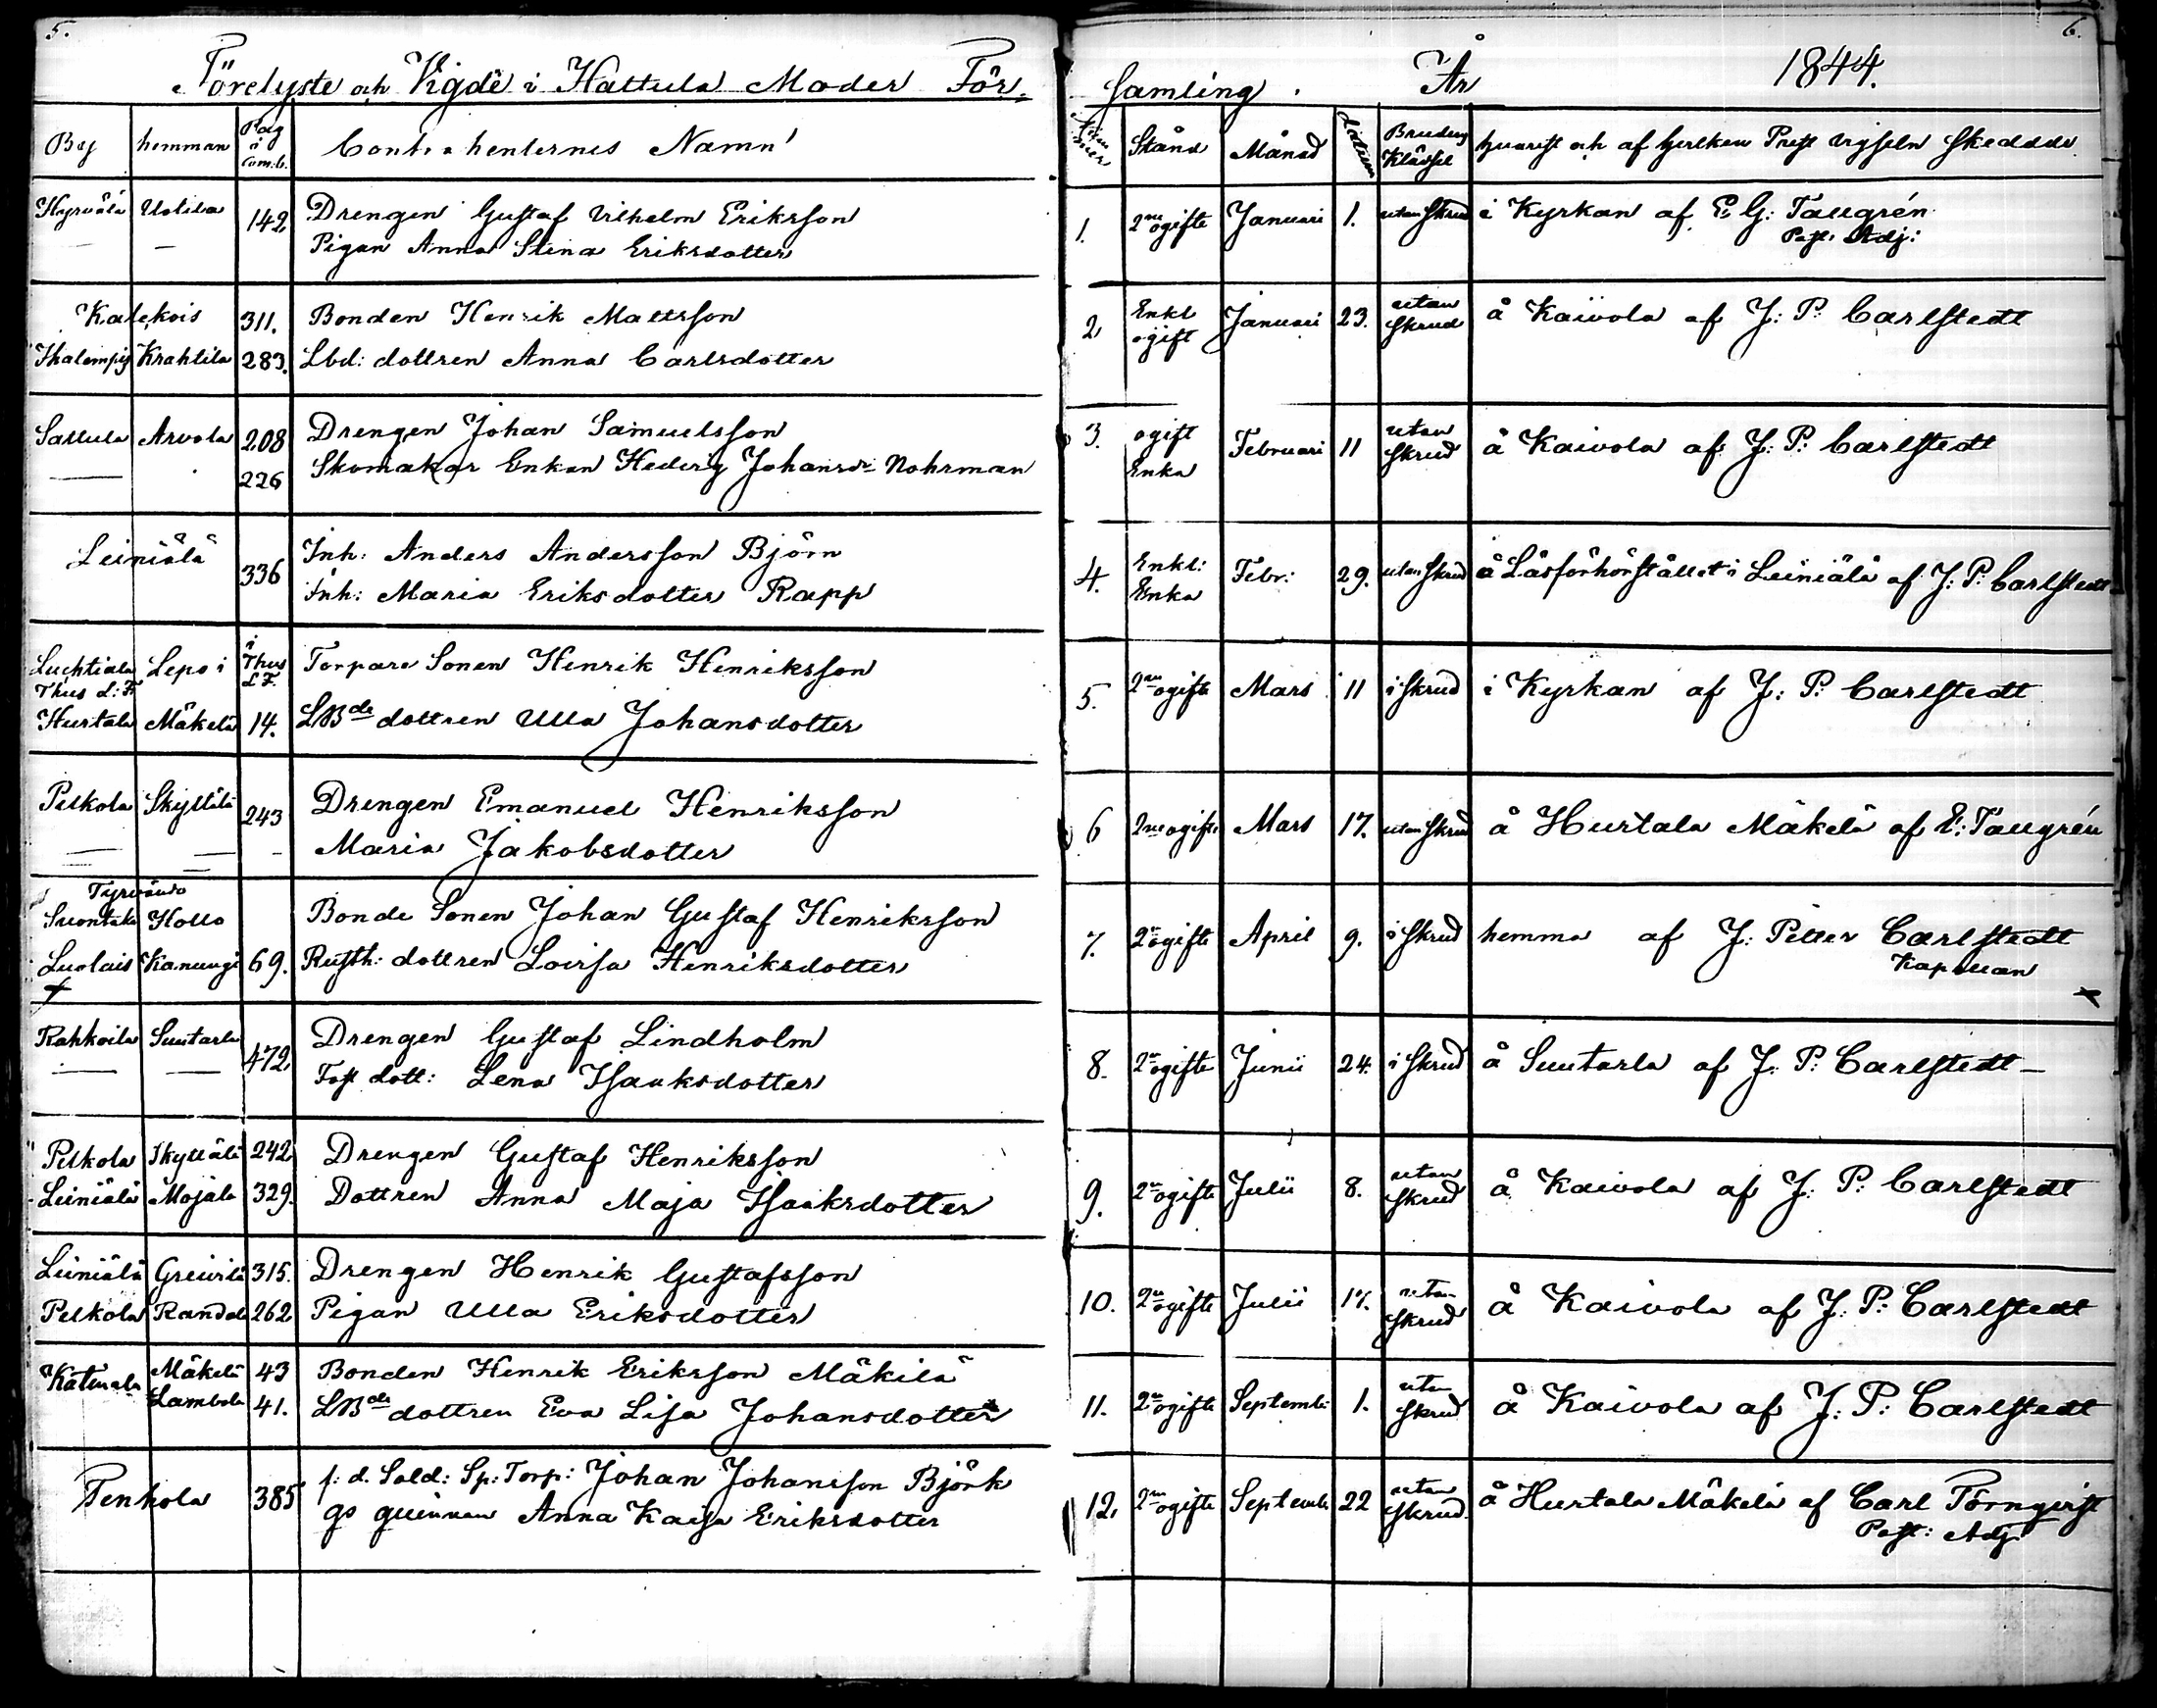 5.
Förelyste och Vigde i Hattula Moder För-
By hemman Pag å Com.b. Contrahenternes Namn
Hyrvälä Uotila 142 Drengen Gustaf Vilhelm Eriksson
— — Pigan Anna Stina Eriksdotter
Kalekois 311. Bonden Henrik Mattsson
Ihalempis Krahtila 283. Lbd: dottren Anna Carlsdotter
Sattula Arvola 208 Drengen Johan Samuelsson
— 226 Skomakar Enkan Hedvig Johansdr Nohrman
Leiniälä 336 Inh: Anders Andersson Björn
Inh: Maria Eriksdotter Rapp
Luchtiala Thus L:F. Lepoi i Thus L F. Torpare Sonen Henrik Henriksson
Hurtala Mäkelä 14. LBde dottren Ulla Johansdotter
Pelkola Skyttälä 243 Drengen Emanuel Henriksson
— — - Maria Jakobsdotter
Tyrväntö
Suontaka Hollo Bonde Sonen Johan Gustaf Henriksson
Luolais Kanungi 69. Rusth: dottren Lovisa Henriksdotter
Rahkoila Suutarla 472 Drengen Gustaf Lindholm
— — Torp dott: Lena Isaaksdotter
Pelkola Skyttälä 242 Drengen Gustaf Henriksson
Leiniälä Mojala 329. Dottren Anna Maja Isaaksdotter
Leiniälä Greivilä 315. Drengen Henrik Gustafsson
Pelkola Randala 262 Pigan Ulla Eriksdotter
Katinala Mäkelä 43 Bonden Henrik Eriksson Mäkilä
Lambola 41. LBde dottren Eva Lisa Johansdotter
Tenhola 385 f: d. Sold: Sp: Torp: Johan Johansson Björk
qs quinnan Anna Kaisa Eriksdotter
6.
samling. År 1844.
Nummer Stånd Månad Datum Brudens Klädsel hvarest och af hvilken Prest vigseln skedde
1. 2ne ogifte Januari 1. utan skrud i Kyrkan af E. G: Taugrén
Past: Adj:
2 Enkl ogift Januari 23. utan skrud å Kaivola af J: P: Carlstedt
3. ogift Enka Februari 11 utan skrud å Kaivola af J: P: Carlstedt
4. Enkl: Enka Febr: 29. utan skrud å Läsförhörstället i Leiniälä af J: P: Carlstedt
5. 2ne ogifte Mars 11 i skrud i Kyrkan af J: P: Carlstedt
6 2ne ogifte Mars 17. utan skrud å Hurtala Mäkelä af E: Taugrén
7. 2ne ogifte April 9. i skrud hemma af J: Petter Carlstedt
Kapellan
8. 2ne ogifte Junii 24. i skrud å Suutarla af J: P: Carlstedt —
9. 2ne ogifte Julii 8. utan skrud å Kaivola af J: P: Carlstedt
10. 2ne ogifte Julii 17. utan skrud å Kaivola af J: P: Carlstedt
11. 2ne ogifte Septemb: 1. utan skrud å Kaivola af J: P: Carlstedt
12. 2ne ogifte Septemb: 22 utan skrud å Hurtala Mäkelä af Carl Törnqvist
Past: Adj: